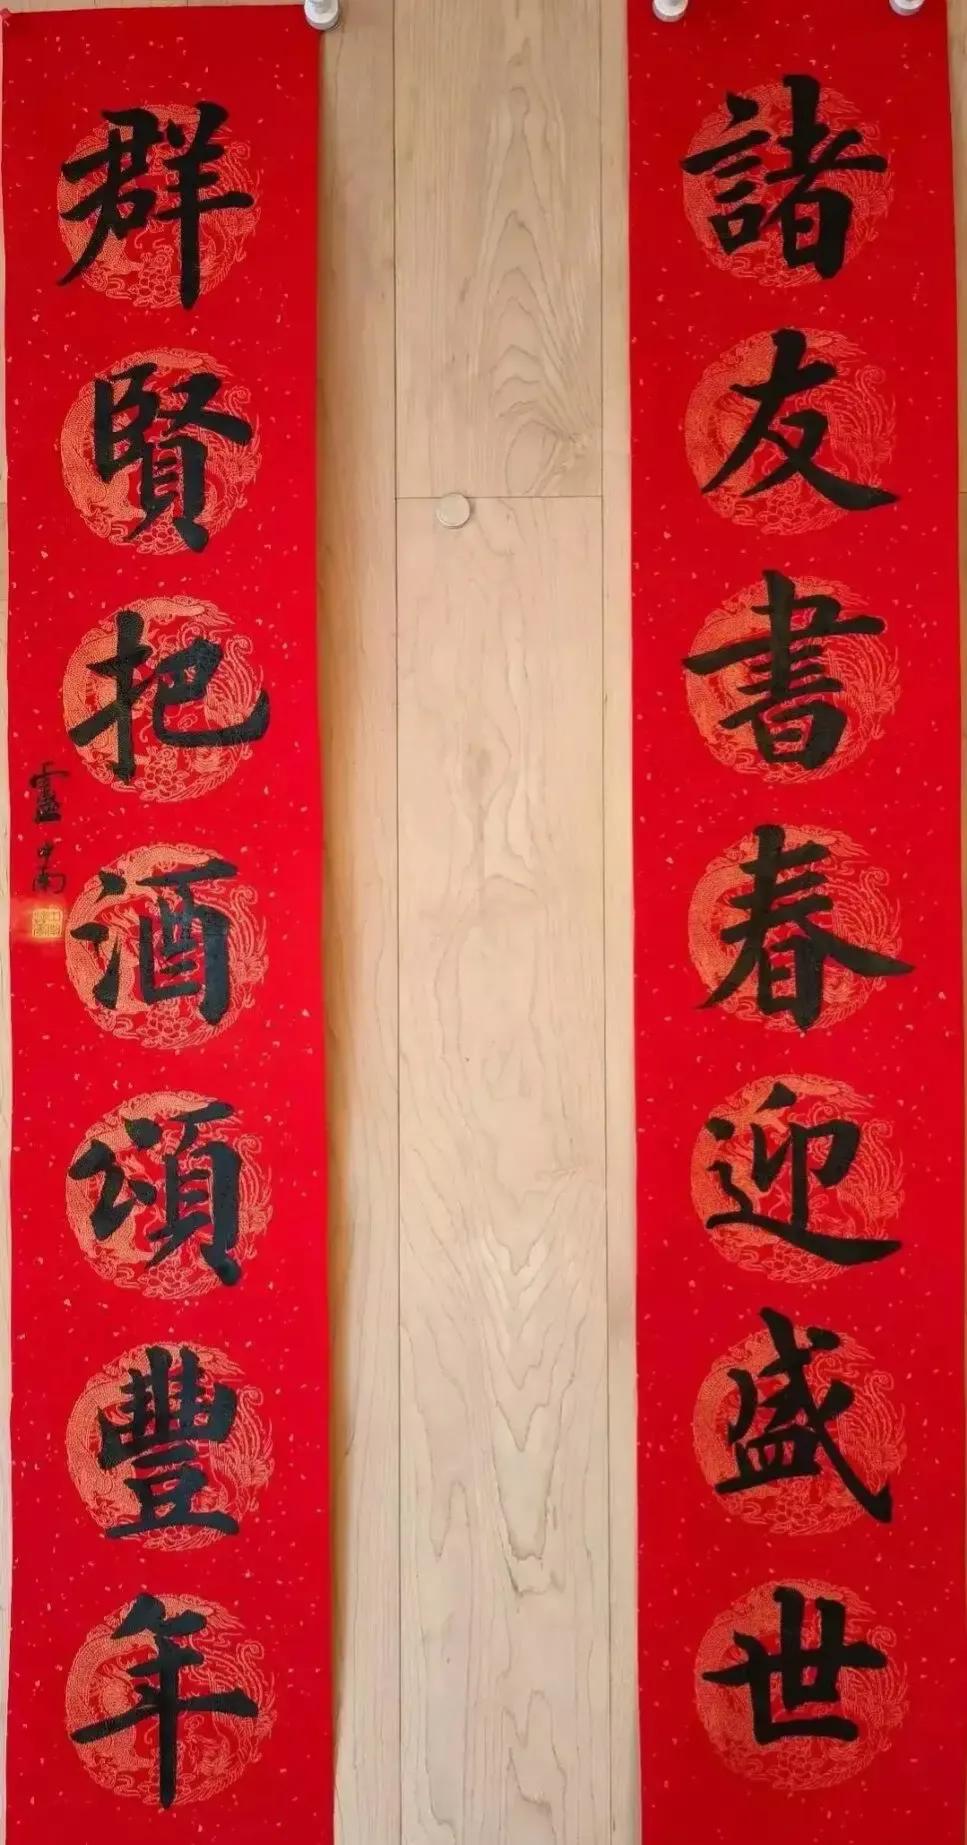 諸友書春迎盛世
群賢把酒頌豐年